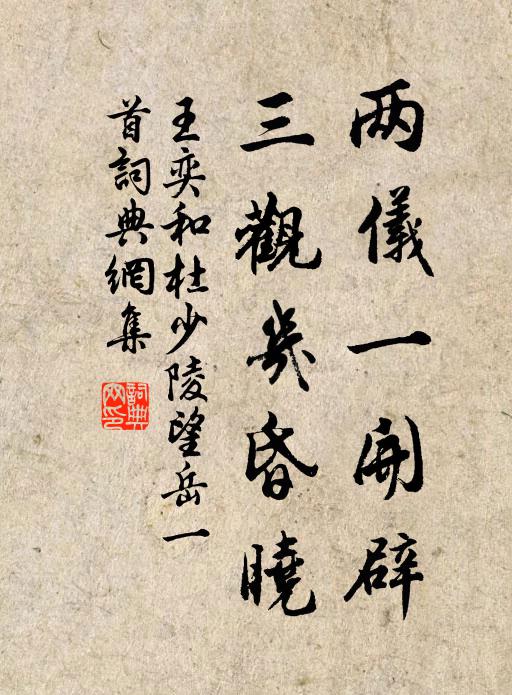 两儀一開辟
三觀幾昏曉
王奕和杜少陵望岳一
首詞典網集
詞典
网印